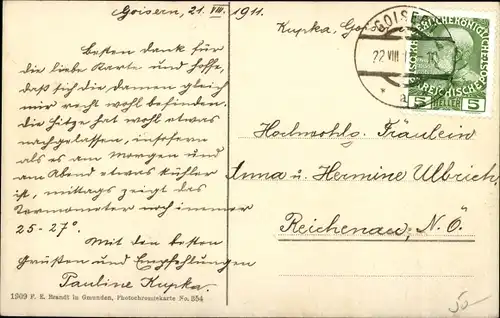 Goisern, 21. VIII. 1911.
Kupka, Goisern
Besten Dank für
die liebe Karte und hoffe,
daß sich die Damen gleich
mir recht wohl befinden.
Die Hitze hat wohl etwas
nachgelassen, insofern
als es am Morgen und
am Abend etwas kühler
ist, mittags zeigt das
Termometer noch immer
25-27°.
Mit den besten
Grüßen und Empfehlungen
Pauline Kupka.
1909 F. E. Brandt in Gmunden, Photochromiekarte No. 554
GOISERN
22 VIII
* a
5 HELLER 5
Hochwohlg. Fräulein
Anna u. Hermine Ulbrich
Reichenau, N. Ö.
50